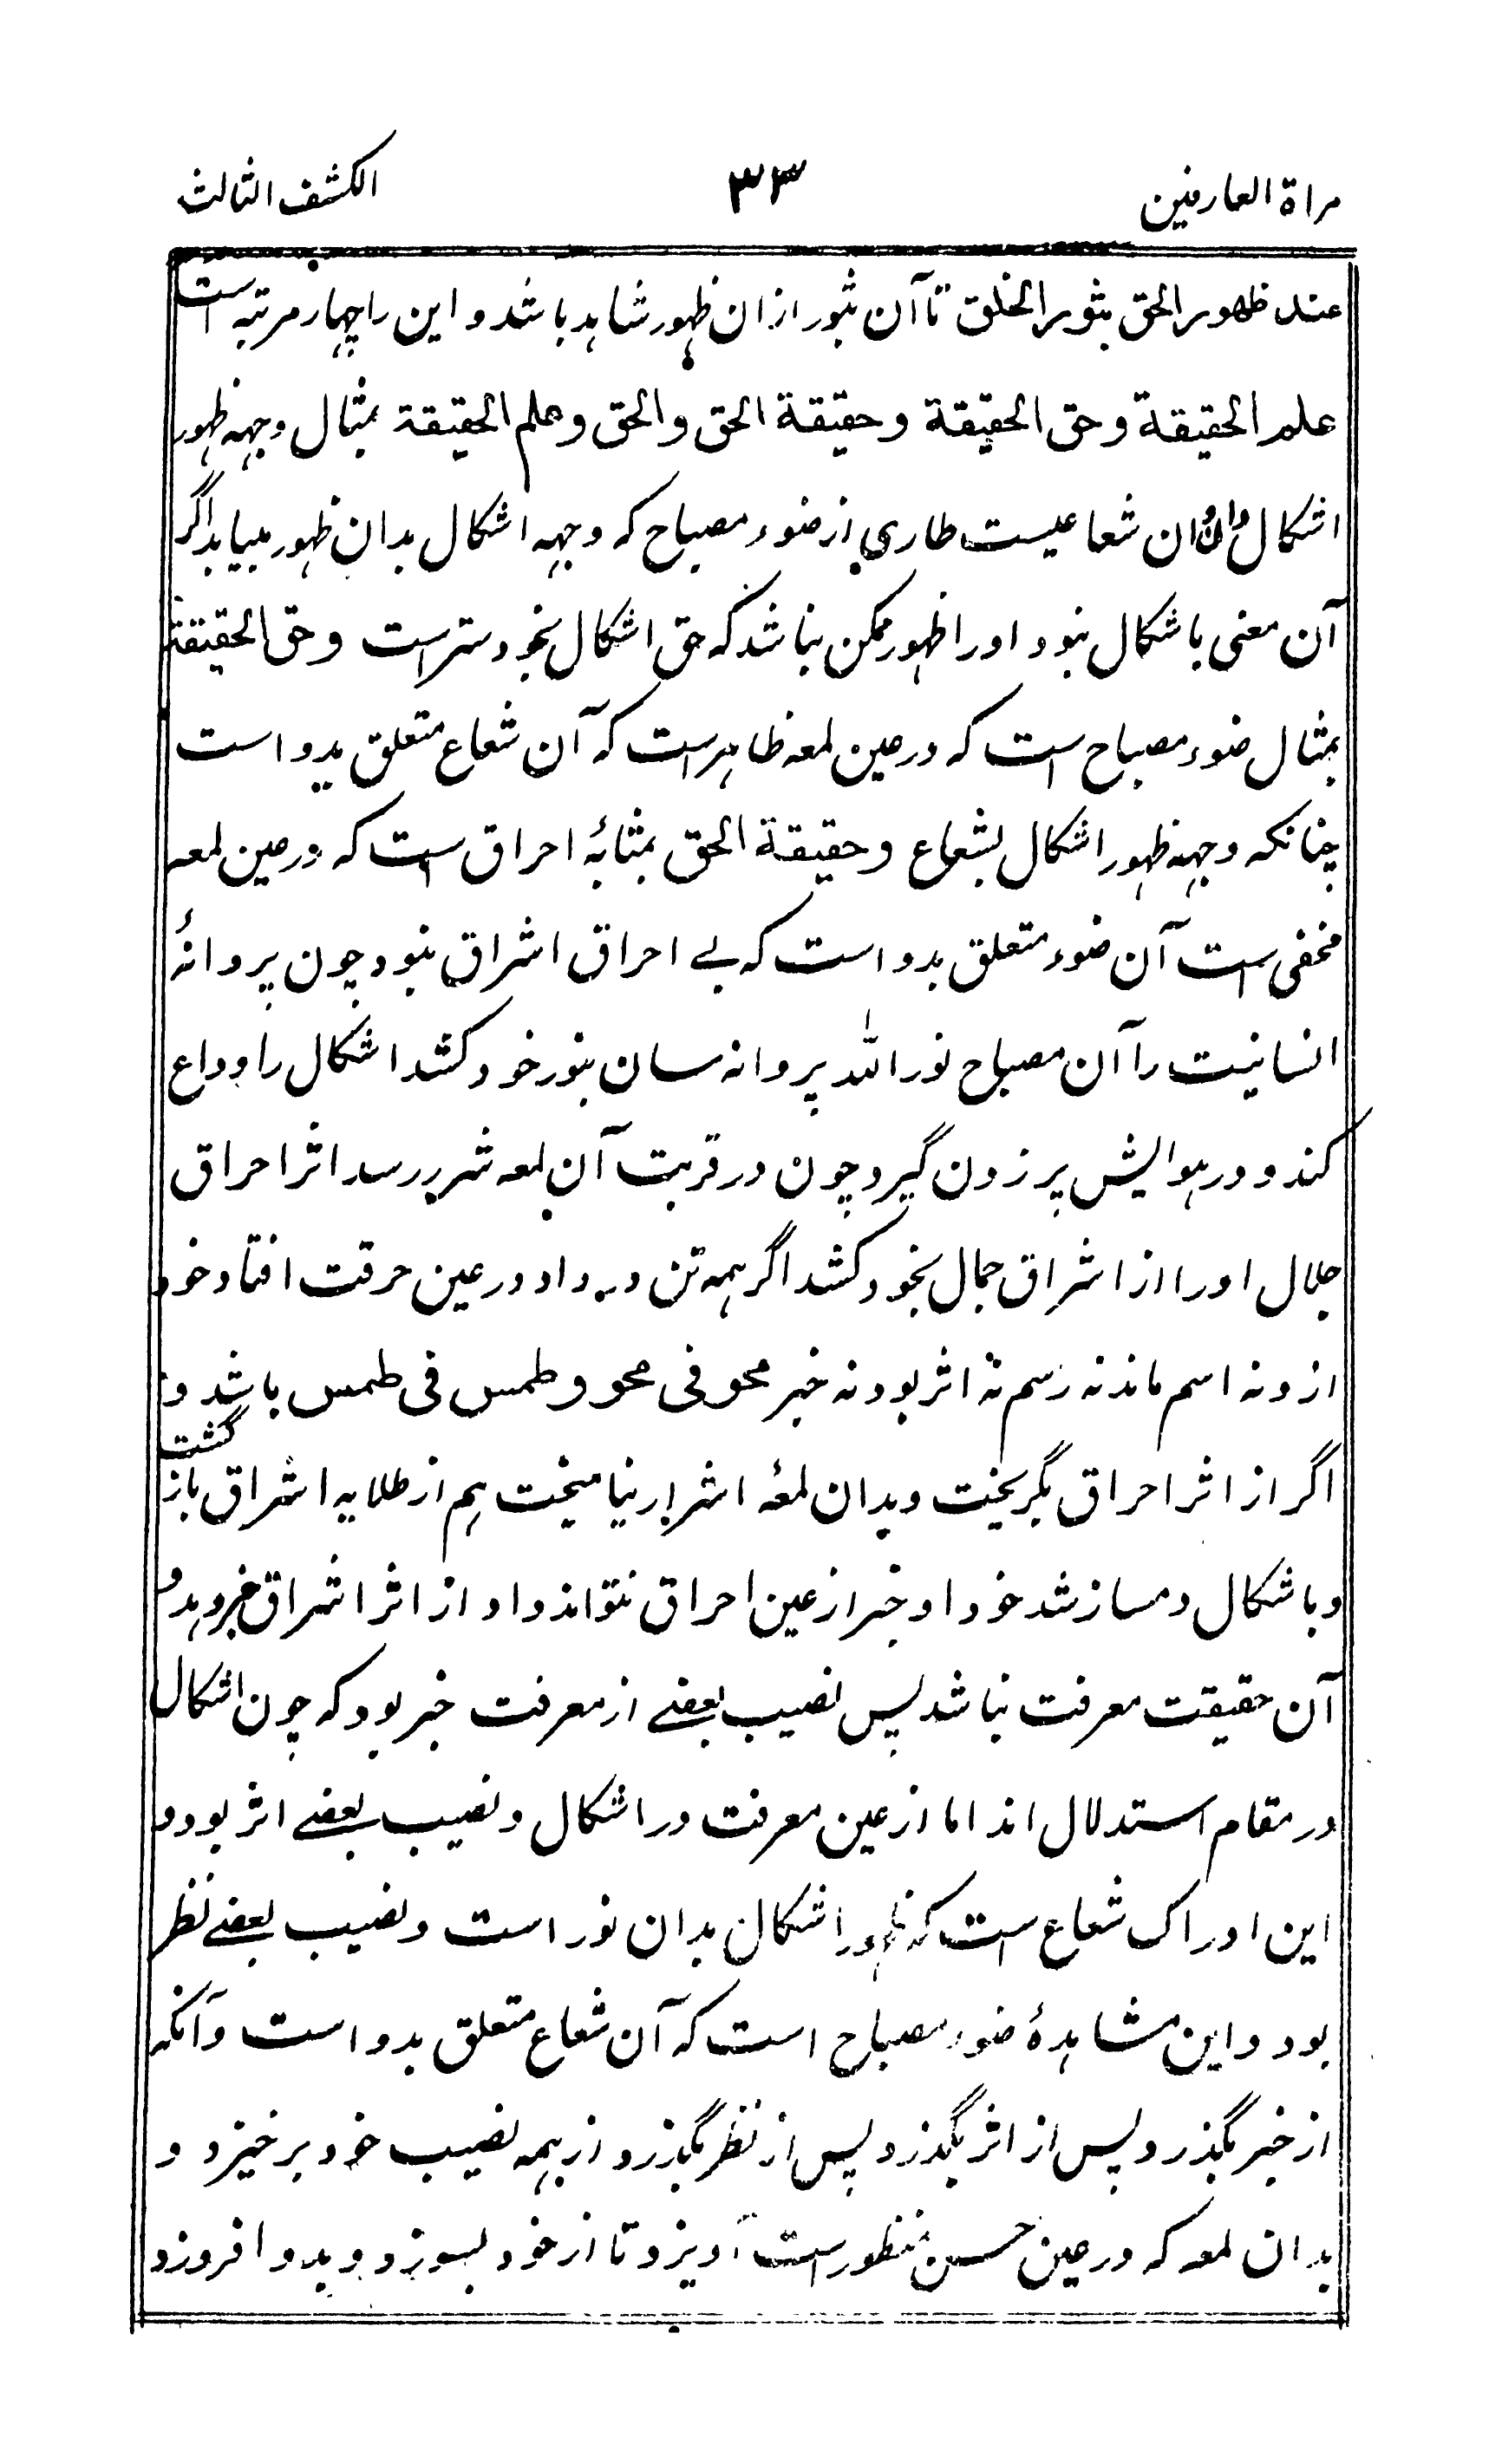 مراة العارفين ٣٣ الكشف الثالث
عند ظهور الحق بثور الخلق تا آن ثور ازان ظهور شاهد باشد و این را چهار مرتبه است
علم الحقيقة وحق الحقيقة وحقيقة الحق والحق وعلم الحقيقة بمثال وجهه ظهور
اشکال والوان شعاعیست طاری از ضوء مصباح که وجهه اشکال بدان ظهور مییابد اگر
آن معنی باشکال نبود او را ظهور ممکن نباشد که حق اشکال بخود ستر است وحق الحقيقة
بمثال ضوء مصباح است که در عین لمعه ظاهر است که آن شعاع متعلق بدو است
چنانکه وجهه ظهور اشکال بشعاع وحقيقة الحق بمثابهٔ احراق است که در عین لمعه
مخفی است آن ضوء متعلق بدو است که بے احراق اشراق نبود چون پروانهٔ
انسانیت را آن مصباح نور الله پروانه سان بنور خود کشد اشکال را وداع
کند و در هوایش پر زدن گیرد چون در قربت آن لمعه شرر رسد اثر احراق
جلال او را از اشراق جمال بخود کشد اگر همه تن در داد در عین حرقت افتاد خود
ازو نه اسم ماند نه رسم نه اثر بود نه خبر محو فی محو و طمس فی طمس باشد و
اگر از اثر احراق بگریخت و بدان لمعهٔ اشرار نیامیخت هم از طلایه اشراق باز گشت
و باشکال دمساز شد خود او خبر از عین احراق نتواند داد از اثر اشراق خبر دهد و
آن حقیقت معرفت نباشد پس نصیب بعضے از معرفت خبر بود که چون اشکال
در مقام استدلال اند اما از عین معرفت در اشکال و نصیب بعضے اثر بود و
این ادراک شعاع است که ظهور اشکال بدان نور است و نصیب بعضے نظر
بود و این مشاهدهٔ ضوء مصباح است که آن شعاع متعلق بدو است و آنکه
از خبر بگذرد پس از اثر بگذرد پس از نظر بگذرد از همه نصیب خود برخیزد و
بدان لمعه که در عین حسن منظور است آویزد تا از خود بسوزد و بدو افروزد